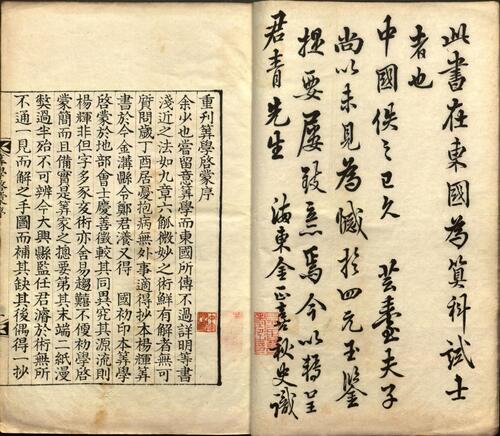 此書在東國為算科試士
者也
中國佚之已久 芸臺夫子
尚以未見為憾於四元玉鑑
提要屢致意焉今以轉呈
君青先生 海東金正喜秋史識
重刋筭學啓蒙序
余少也嘗留意筭學而東國所傳不過詳明等書
淺近之法如九章六觚微妙之術鮮有解者無可
質問歲丁酉居憂抱病無外事適得抄本楊輝筭
書於今金溝縣令鄭君養又得 國初印本筭學
啓蒙於地部會士慶善徵較其同異究其源流則
楊輝非但字多豕亥術亦舍易趨難不便初學啓
蒙簡而且備實是筭家之摠要第其末端二紙漫
獘過半殆不可辨今大興縣監任君濬於術無所
不通一見而解之手圖而補其缺其後偶得一抄